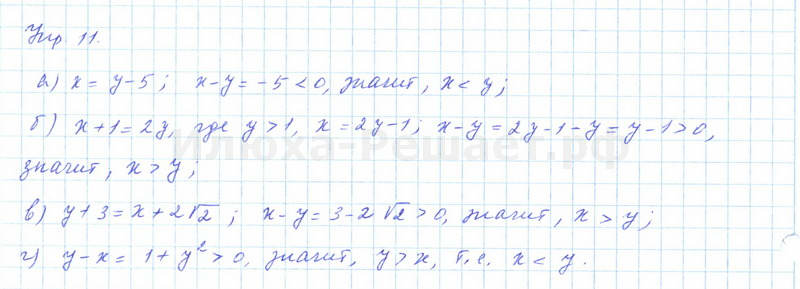 Упр. 11.
а) x = y-5; x-y = -5 < 0, значит, x < y;
б) x+1 = 2y, где y > 1, x = 2y-1; x-y = 2y-1-y = y-1 > 0,
Илюха-Решает.рф
значит, x > y;
в) y+3 = x+2√2; x-y = 3-2√2 > 0, значит, x > y;
г) y-x = 1+y² > 0, значит, y > x, т.е. x < y.